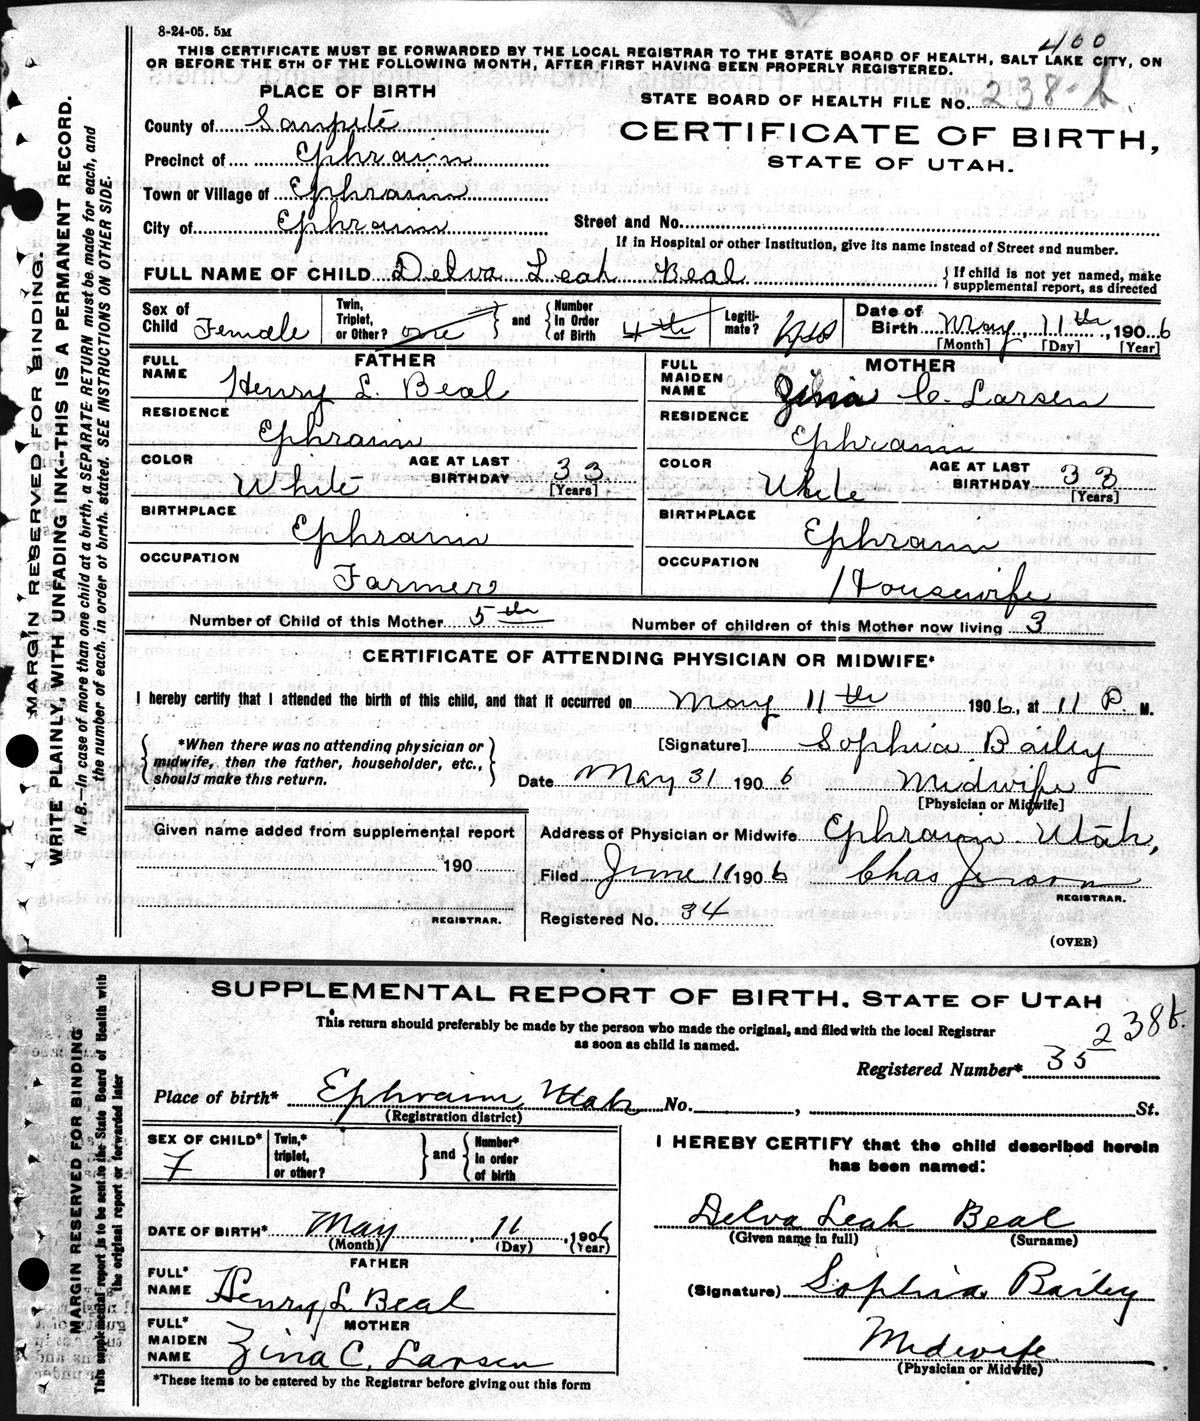 8-24-05. 5M
400
THIS CERTIFICATE MUST BE FORWARDED BY THE LOCAL REGISTRAR TO THE STATE BOARD OF HEALTH, SALT LAKE CITY, ON
OR BEFORE THE 5TH OF THE FOLLOWING MONTH, AFTER FIRST HAVING BEEN PROPERLY REGISTERED.
PLACE OF BIRTH
STATE BOARD OF HEALTH FILE No. 238-b
County of Sanpete
CERTIFICATE OF BIRTH,
STATE OF UTAH.
Precinct of Ephraim
Town or Village of Ephraim
City of Ephraim
Street and No.
If in Hospital or other Institution, give its name instead of Street and number.
FULL NAME OF CHILD Delva Leah Beal
{ If child is not yet named, make supplemental report, as directed
Sex of Child Female
Twin, Triplet, or Other? one } and { Number In Order of Birth 4th
Legitimate? yes
Date of Birth May, 11th, 1906
[Month] [Day] [Year]
FATHER
FULL NAME Henry L. Beal
MOTHER
FULL MAIDEN NAME Zina C. Larsen
RESIDENCE Ephraim
RESIDENCE Ephraim
COLOR White AGE AT LAST BIRTHDAY 33 [Years]
COLOR White AGE AT LAST BIRTHDAY 33 [Years]
BIRTHPLACE Ephraim
BIRTHPLACE Ephraim
OCCUPATION Farmer
OCCUPATION Housewife
Number of Child of this Mother 5th Number of children of this Mother now living 3
CERTIFICATE OF ATTENDING PHYSICIAN OR MIDWIFE*
I hereby certify that I attended the birth of this child, and that it occurred on May 11th 1906, at 11 P. M.
{ *When there was no attending physician or midwife, then the father, householder, etc., should make this return. }
[Signature] Sophia Bailey
Date May 31 1906 Midwife
[Physician or Midwife]
Given name added from supplemental report
190
REGISTRAR.
Address of Physician or Midwife Ephraim Utah,
Filed June 11 1906 Chas Jenson
REGISTRAR.
Registered No. 34
(OVER)
MARGIN RESERVED FOR BINDING.
WRITE PLAINLY, WITH UNFADING INK--THIS IS A PERMANENT RECORD.
N. B.--In case of more than one child at a birth, a SEPARATE RETURN must be made for each, and
the number of each, in order of birth, stated. SEE INSTRUCTIONS ON OTHER SIDE.
SUPPLEMENTAL REPORT OF BIRTH. STATE OF UTAH
This return should preferably be made by the person who made the original, and filed with the local Registrar
as soon as child is named.
238b.
Registered Number* 35
Place of birth* Ephraim, Utah No. , St.
(Registration district)
SEX OF CHILD* F
Twin,* triplet, or other? } and { Number* In order of birth
DATE OF BIRTH* May, 11, 1906
(Month) (Day) (Year)
FATHER
FULL* NAME Henry L. Beal
MOTHER
FULL* MAIDEN NAME Zina C. Larsen
*These items to be entered by the Registrar before giving out this form
I HEREBY CERTIFY that the child described herein
has been named:
Delva Leah Beal
(Given name in full) (Surname)
(Signature) Sophia Bailey
Midwife
(Physician or Midwife)
MARGIN RESERVED FOR BINDING
This supplemental report is to be sent to the State Board of Health with
the original report or forwarded later